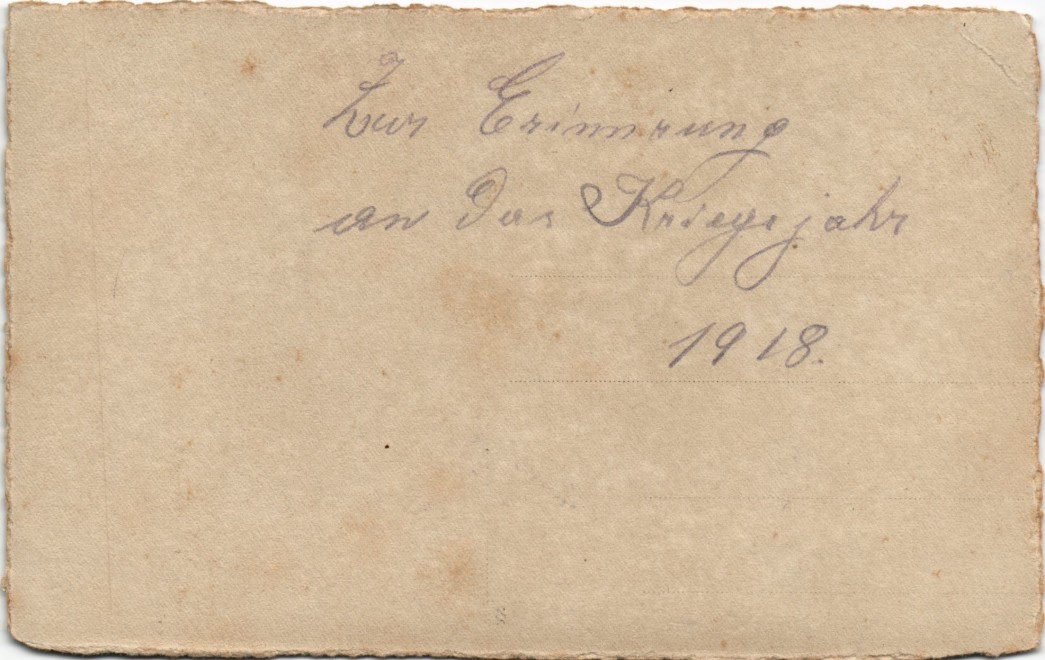 Zur Erinnerung
an das Kriegsjahr
1918.